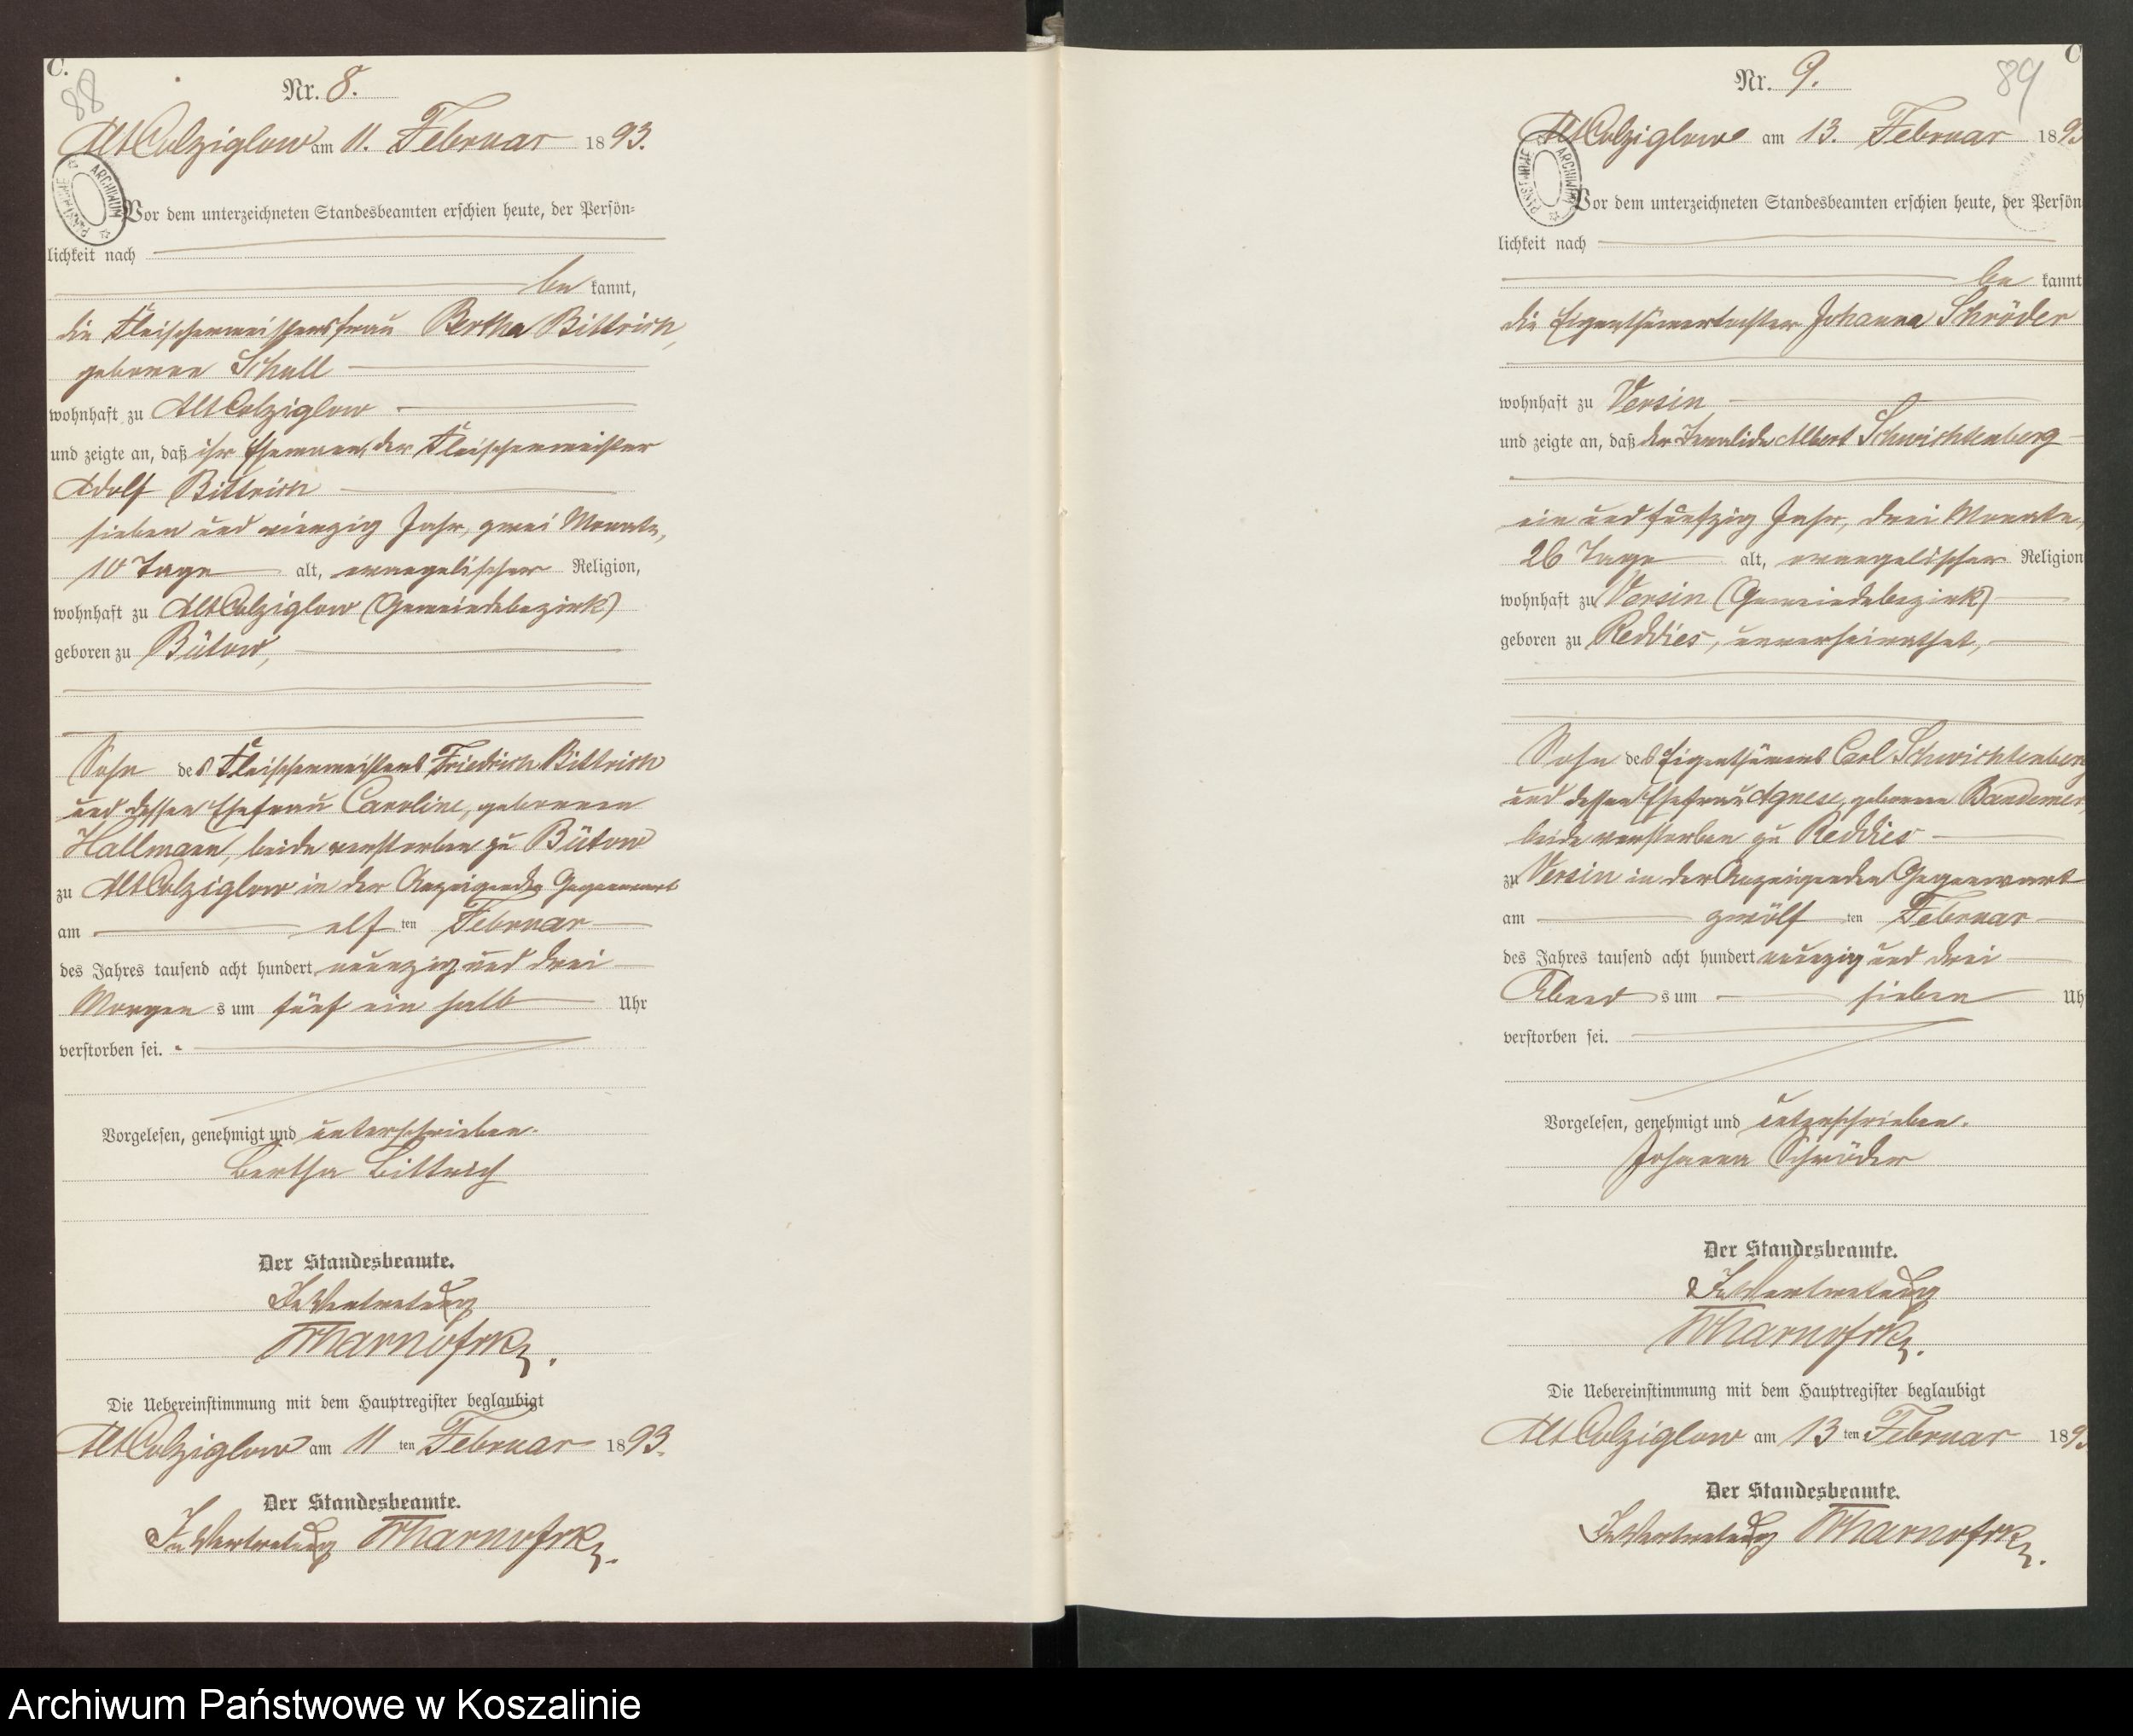 C.
88
Nr. 8.
Alt Colziglow am 11. Februar 1893.
ARCHIWUM PAŃSTWOWE
Vor dem unterzeichneten Standesbeamten erschien heute, der Persön-
lichkeit nach
be kannt,
die Fleischermeistersfrau Bertha Bittrich,
geborene Schull
wohnhaft zu Alt Colziglow
und zeigte an, daß ihr Ehemann, der Fleischermeister
Adolf Bittrich
sieben und vierzig Jahr, zwei Monate,
10 Tage alt, evangelischer Religion,
wohnhaft zu Alt Colziglow (Gemeindebezirk)
geboren zu Bütow,
Sohn des Fleischermeisters Friedrich Bittrich
und dessen Ehefrau Caroline, geborenen
Hallmann, beide verstorben zu Bütow
zu Alt Colziglow in der Anzeigenden Gegenwart
am elf ten Februar
des Jahres tausend acht hundert neunzig und drei
Morgen s um fünf ein halb Uhr
verstorben sei.
Vorgelesen, genehmigt und unterschrieben.
Bertha Bittrich
Der Standesbeamte.
In Vertretung
Die Uebereinstimmung mit dem Hauptregister beglaubigt
Alt Colziglow am 11 ten Februar 1893.
Der Standesbeamte.
In Vertretung
C
89
Nr. 9.
Alt Colziglow am 13. Februar 189
PAŃSTWOWE ARCHIWUM
Vor dem unterzeichneten Standesbeamten erschien heute, der Persön
lichkeit nach
be kannt
die Eigenthümertochter Johanna Schröder
wohnhaft zu Versin
und zeigte an, daß der Invalide Albert Schwichtenberg
ein und fünfzig Jahr, drei Monate,
26 Tage alt, evangelischer Religion
wohnhaft zu Versin (Gemeindebezirk)
geboren zu Reddies, unverheirathet,
Sohn des Eigenthümers Carl Schwichtenberg
und dessen Ehefrau Agnese, geborene Bandemer,
beide verstorben zu Reddies
zu Versin in der Anzeigenden Gegenwart
am zwölf ten Februar
des Jahres tausend acht hundert neunzig und drei
Abend s um sieben Uh
verstorben sei.
Vorgelesen, genehmigt und unterschrieben.
Johanna Schröder
Der Standesbeamte.
In Vertretung
Die Uebereinstimmung mit dem Hauptregister beglaubigt
Alt Colziglow am 13 ten Februar 189
Der Standesbeamte.
In Vertretung
Archiwum Państwowe w Koszalinie